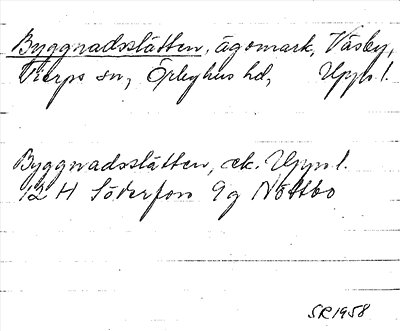 Byggnadsslåtten, ägomark, Väsby,
Vierps sn, Örbyhus hd, Uppl.
Byggnadsslåtten, ek. Uppl.
12 H Söderfon 9g Nöttbo
SR 1958